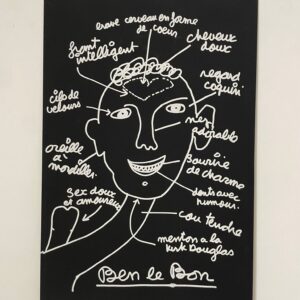 crane cerveau en forme
de coeur
front
intelligent
cheveux
doux
regard
coquin.
cils de
velours
nez
adorable
oreille
à
mordiller.
sourire
de charme
dents avec
humour.
sex doux
et amoureux
cou tendre
menton a la
Kirk Douglas
Ben le Bon